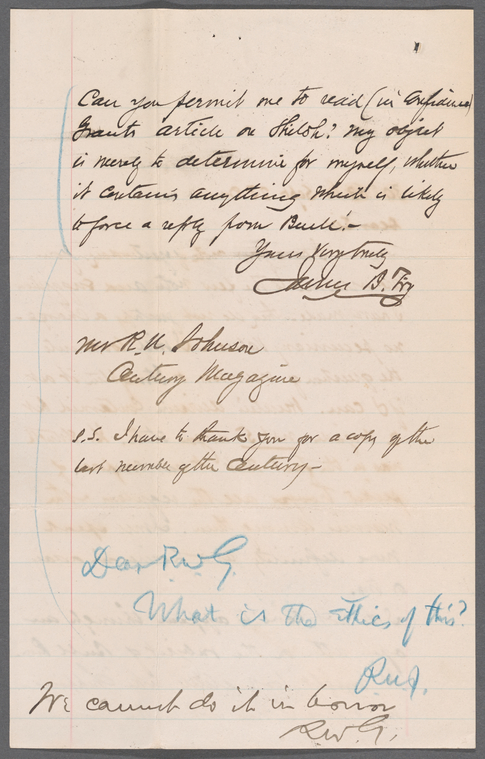 Can you permit me to read (in Confidence)
Grants article on Shiloh? My object
is merely to determine for myself, whether
it contains anything which is likely
to force a reply from Buell.-
Yours very truly
James B. Fry
Mr R. U. Johnson
Century Magazine
P.S. I have to thank you for a copy of the
last number of the Century-
Dear R.W.G.
What is the ethics of this?
R.U.J.
We cannot do it in honor
R.W.G.